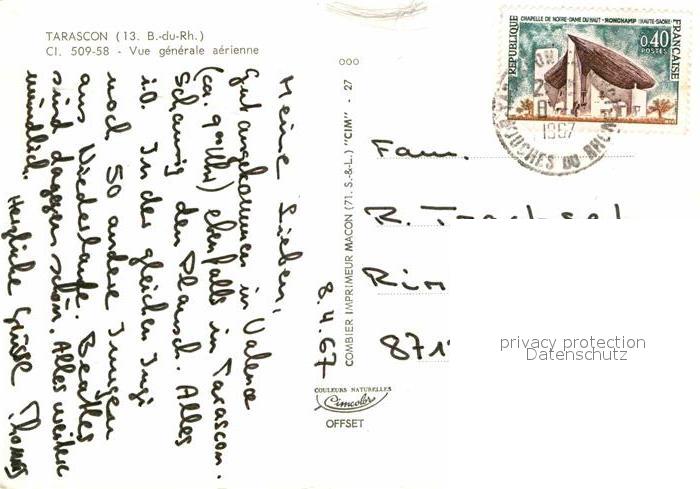 TARASCON (13. B.-du-Rh.)
Cl. 509-58 - Vue générale aérienne
Meine Lieben,
Gut angekommen in Valence
(ca. 9 00 Uhr) ebenfalls in Tarascon.
Schaurig den Plausch. Alles
i.O. In der gleichen Jugi
noch 50 andere Jungen
aus Niederlande. Beatles
sind dagegen schön. Alles weitere
mündlich.
Herzliche Grüsse Thomas
8.4.67
000
COMBIER IMPRIMEUR MACON (71. S.-&-L.) "CIM" - 27
COULEURS NATURELLES
Cimcolor
OFFSET
RÉPUBLIQUE FRANÇAISE
CHAPELLE DE NOTRE-DAME DU HAUT - RONCHAMP (HAUTE-SAÔNE)
0,40
POSTES
1967
BOUCHES DU RHONE
Fam.
R.
871
privacy protection
Datenschutz